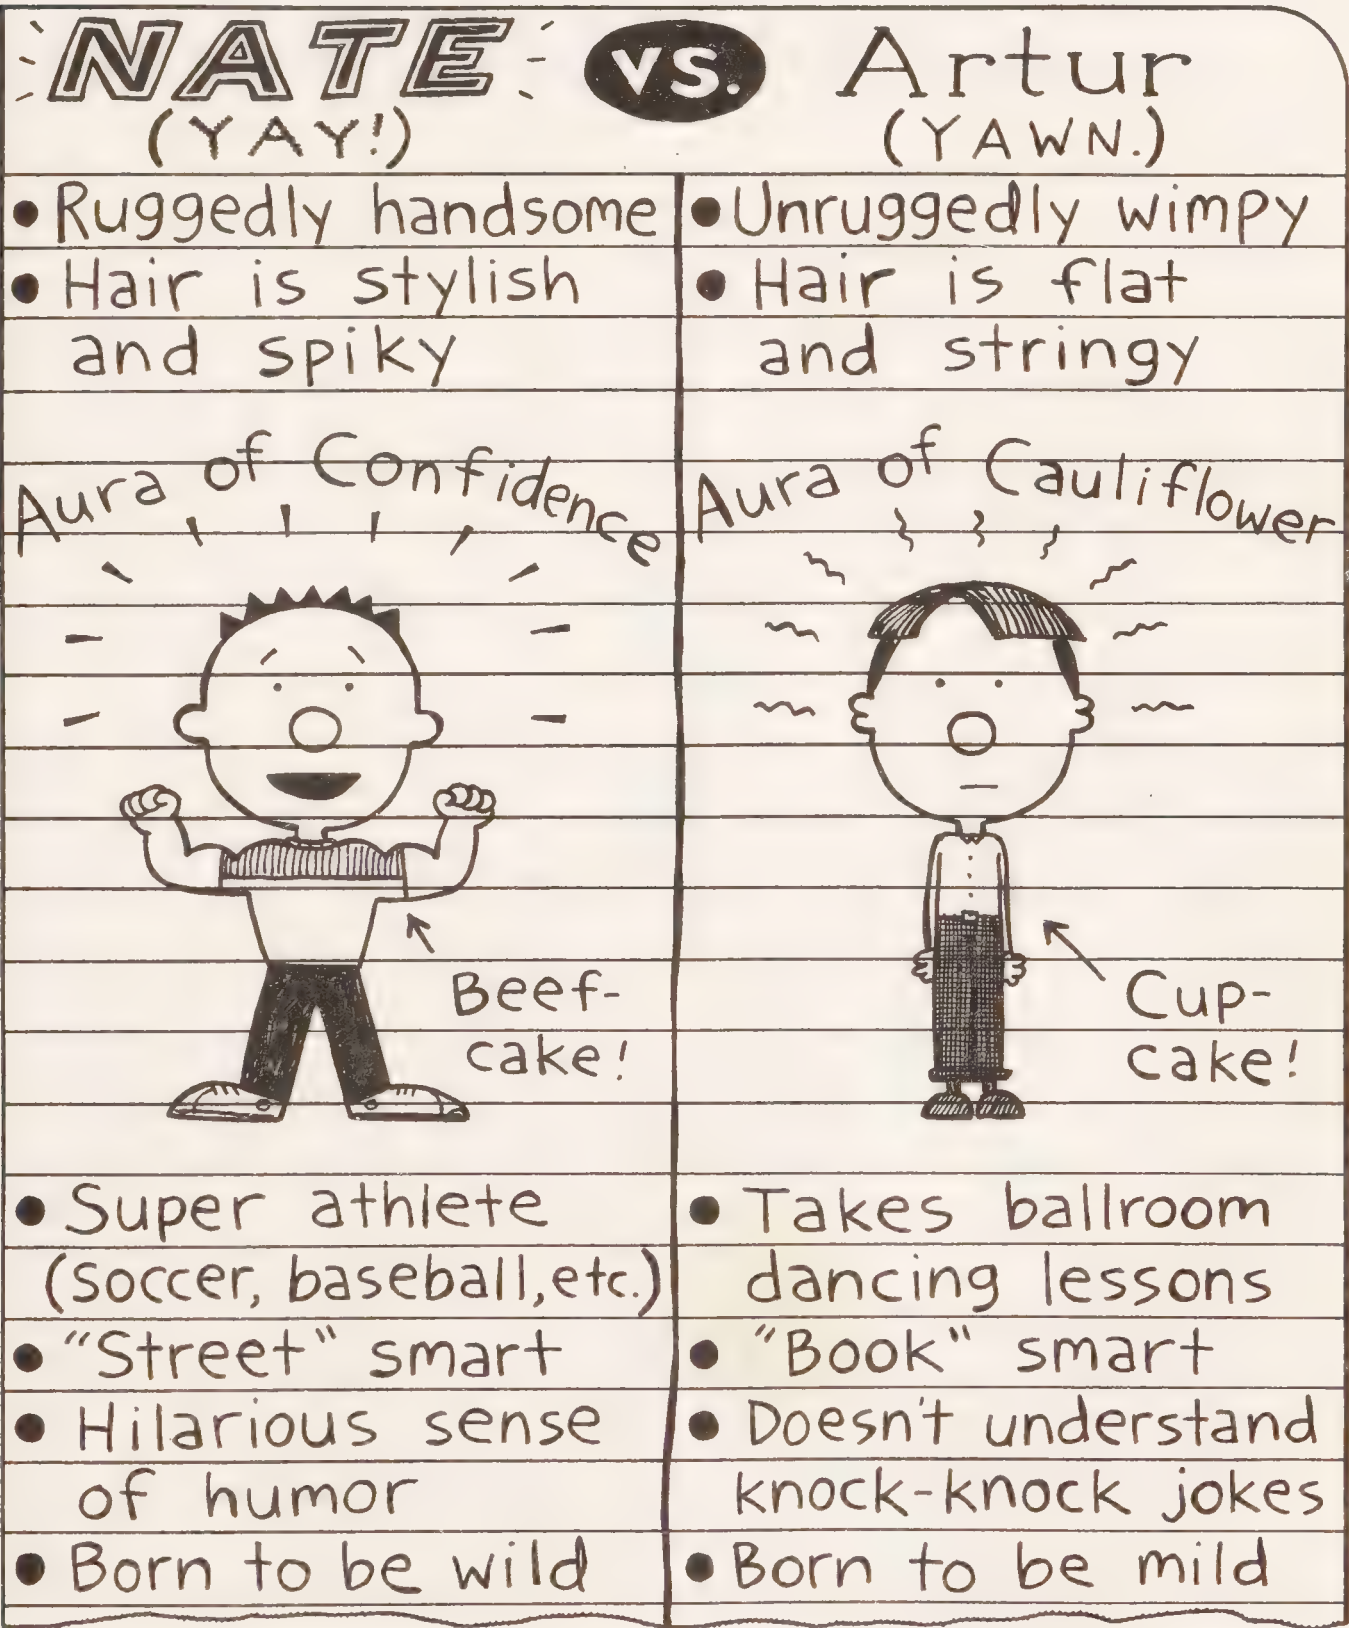 NATE VS. Artur
(YAY!) (YAWN.)
• Ruggedly handsome
• Hair is stylish
and spiky
Aura of Confidence
Beef-
cake!
• Super athlete
(soccer, baseball, etc.)
• "Street" smart
• Hilarious sense
of humor
• Born to be wild
• Unruggedly wimpy
• Hair is flat
and stringy
Aura of Cauliflower
Cup-
cake!
• Takes ballroom
dancing lessons
• "Book" smart
• Doesn't understand
knock-knock jokes
• Born to be mild